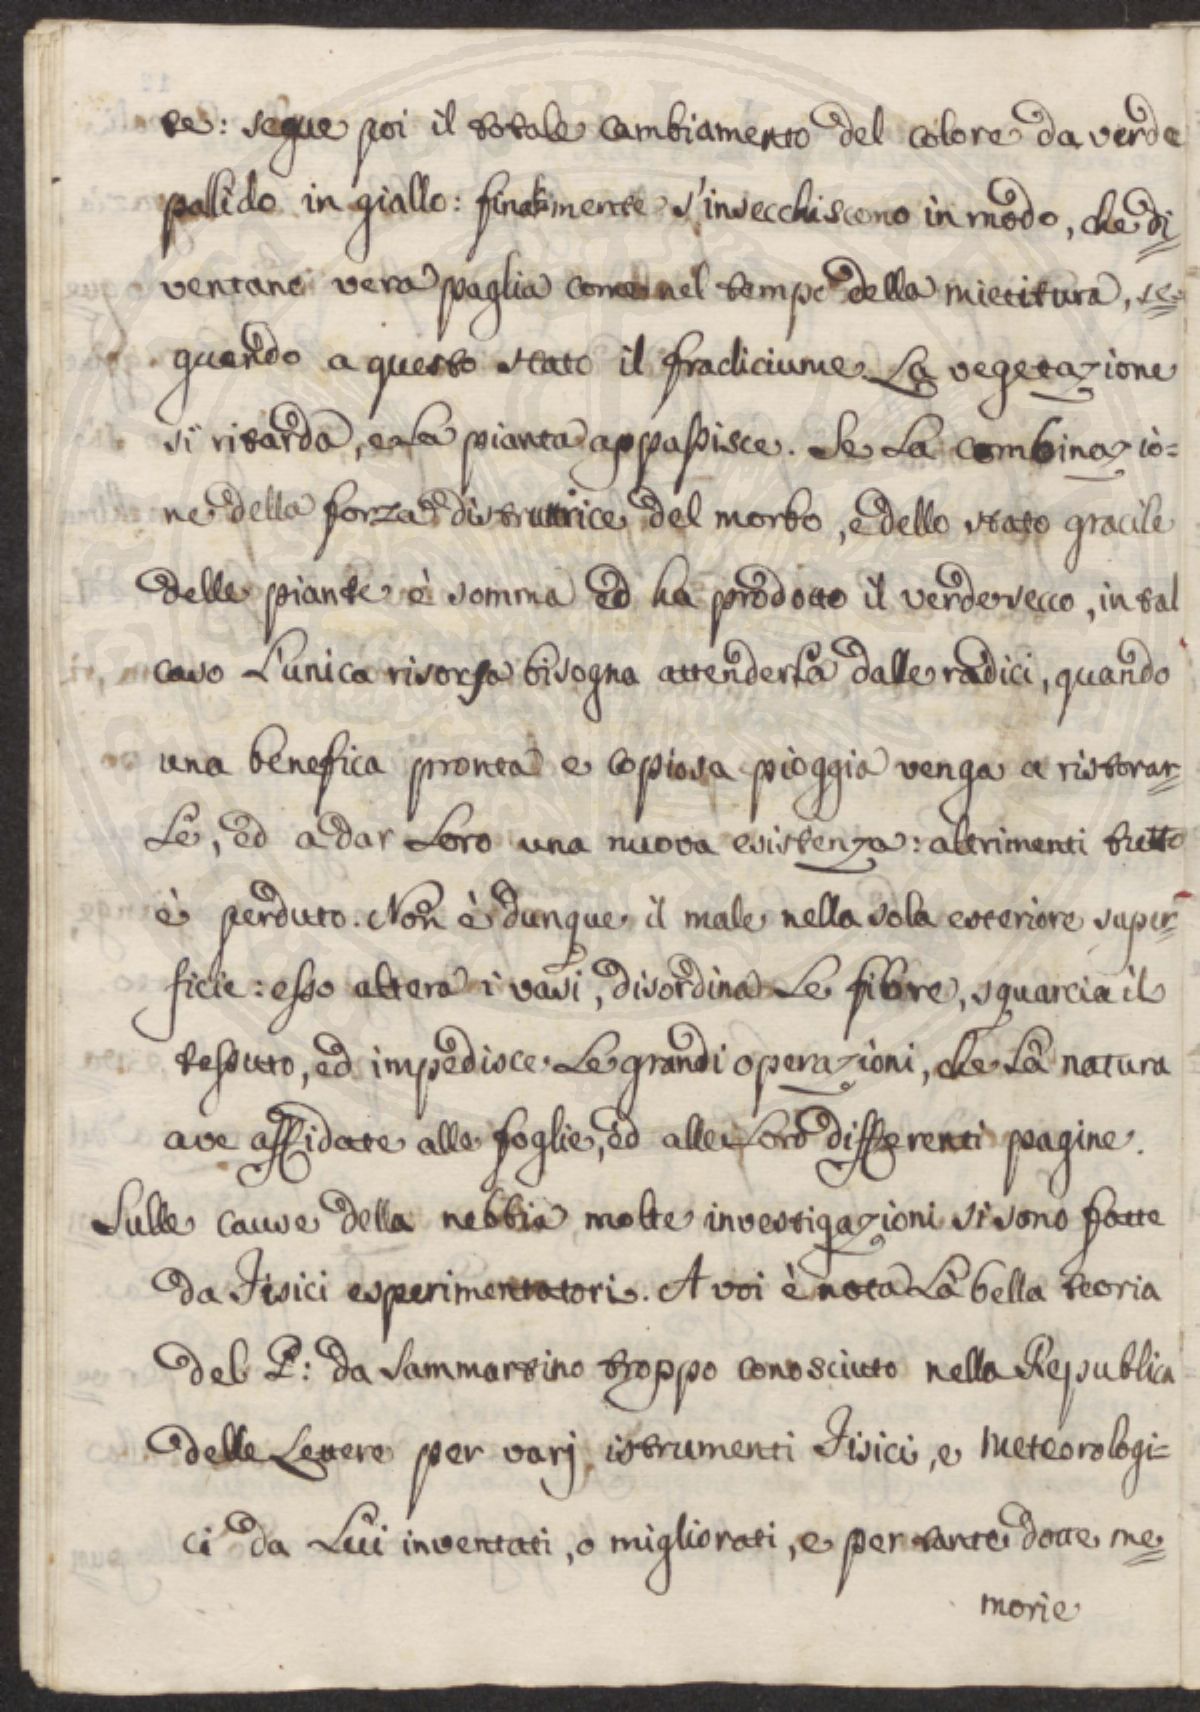 te: segue poi il totale cambiamento del colore da verde
pallido in giallo: finalmente s'insecchiscono in modo, che di=
ventano vera paglia come nel tempo della mietitura, se=
guendo a questo stato il fradiciume. La vegetazione
si ritarda, e la pianta appassisce. Se la combinazio=
ne della forza distruttrice del morbo, e dello stato gracile
delle piante è somma ed ha prodotto il verdesecco, in tal
caso l'unica risorsa bisogna attenderla dalle radici, quando
una benefica pronta e copiosa pioggia venga a ristorar=
le, ed a dar loro una nuova esistenza: altrimenti tutto
è perduto. Non è dunque il male nella sola esteriore super=
ficie: esso altera i vasi, disordina le fibre, squarcia il
tessuto, ed impedisce le grandi operazioni, che la natura
ave affidate alle foglie, ed alle loro differenti pagine.
Sulle cause della nebbia molte investigazioni si sono fatte
da Fisici esperimentatori. A voi è nota la bella teoria
del P: da Sammartino troppo conosciuto nella Republica
delle Lettere per varj istrumenti Fisici, e Meteorologi=
ci da Lui inventati, o migliorati, e per tante dotte me=
morie